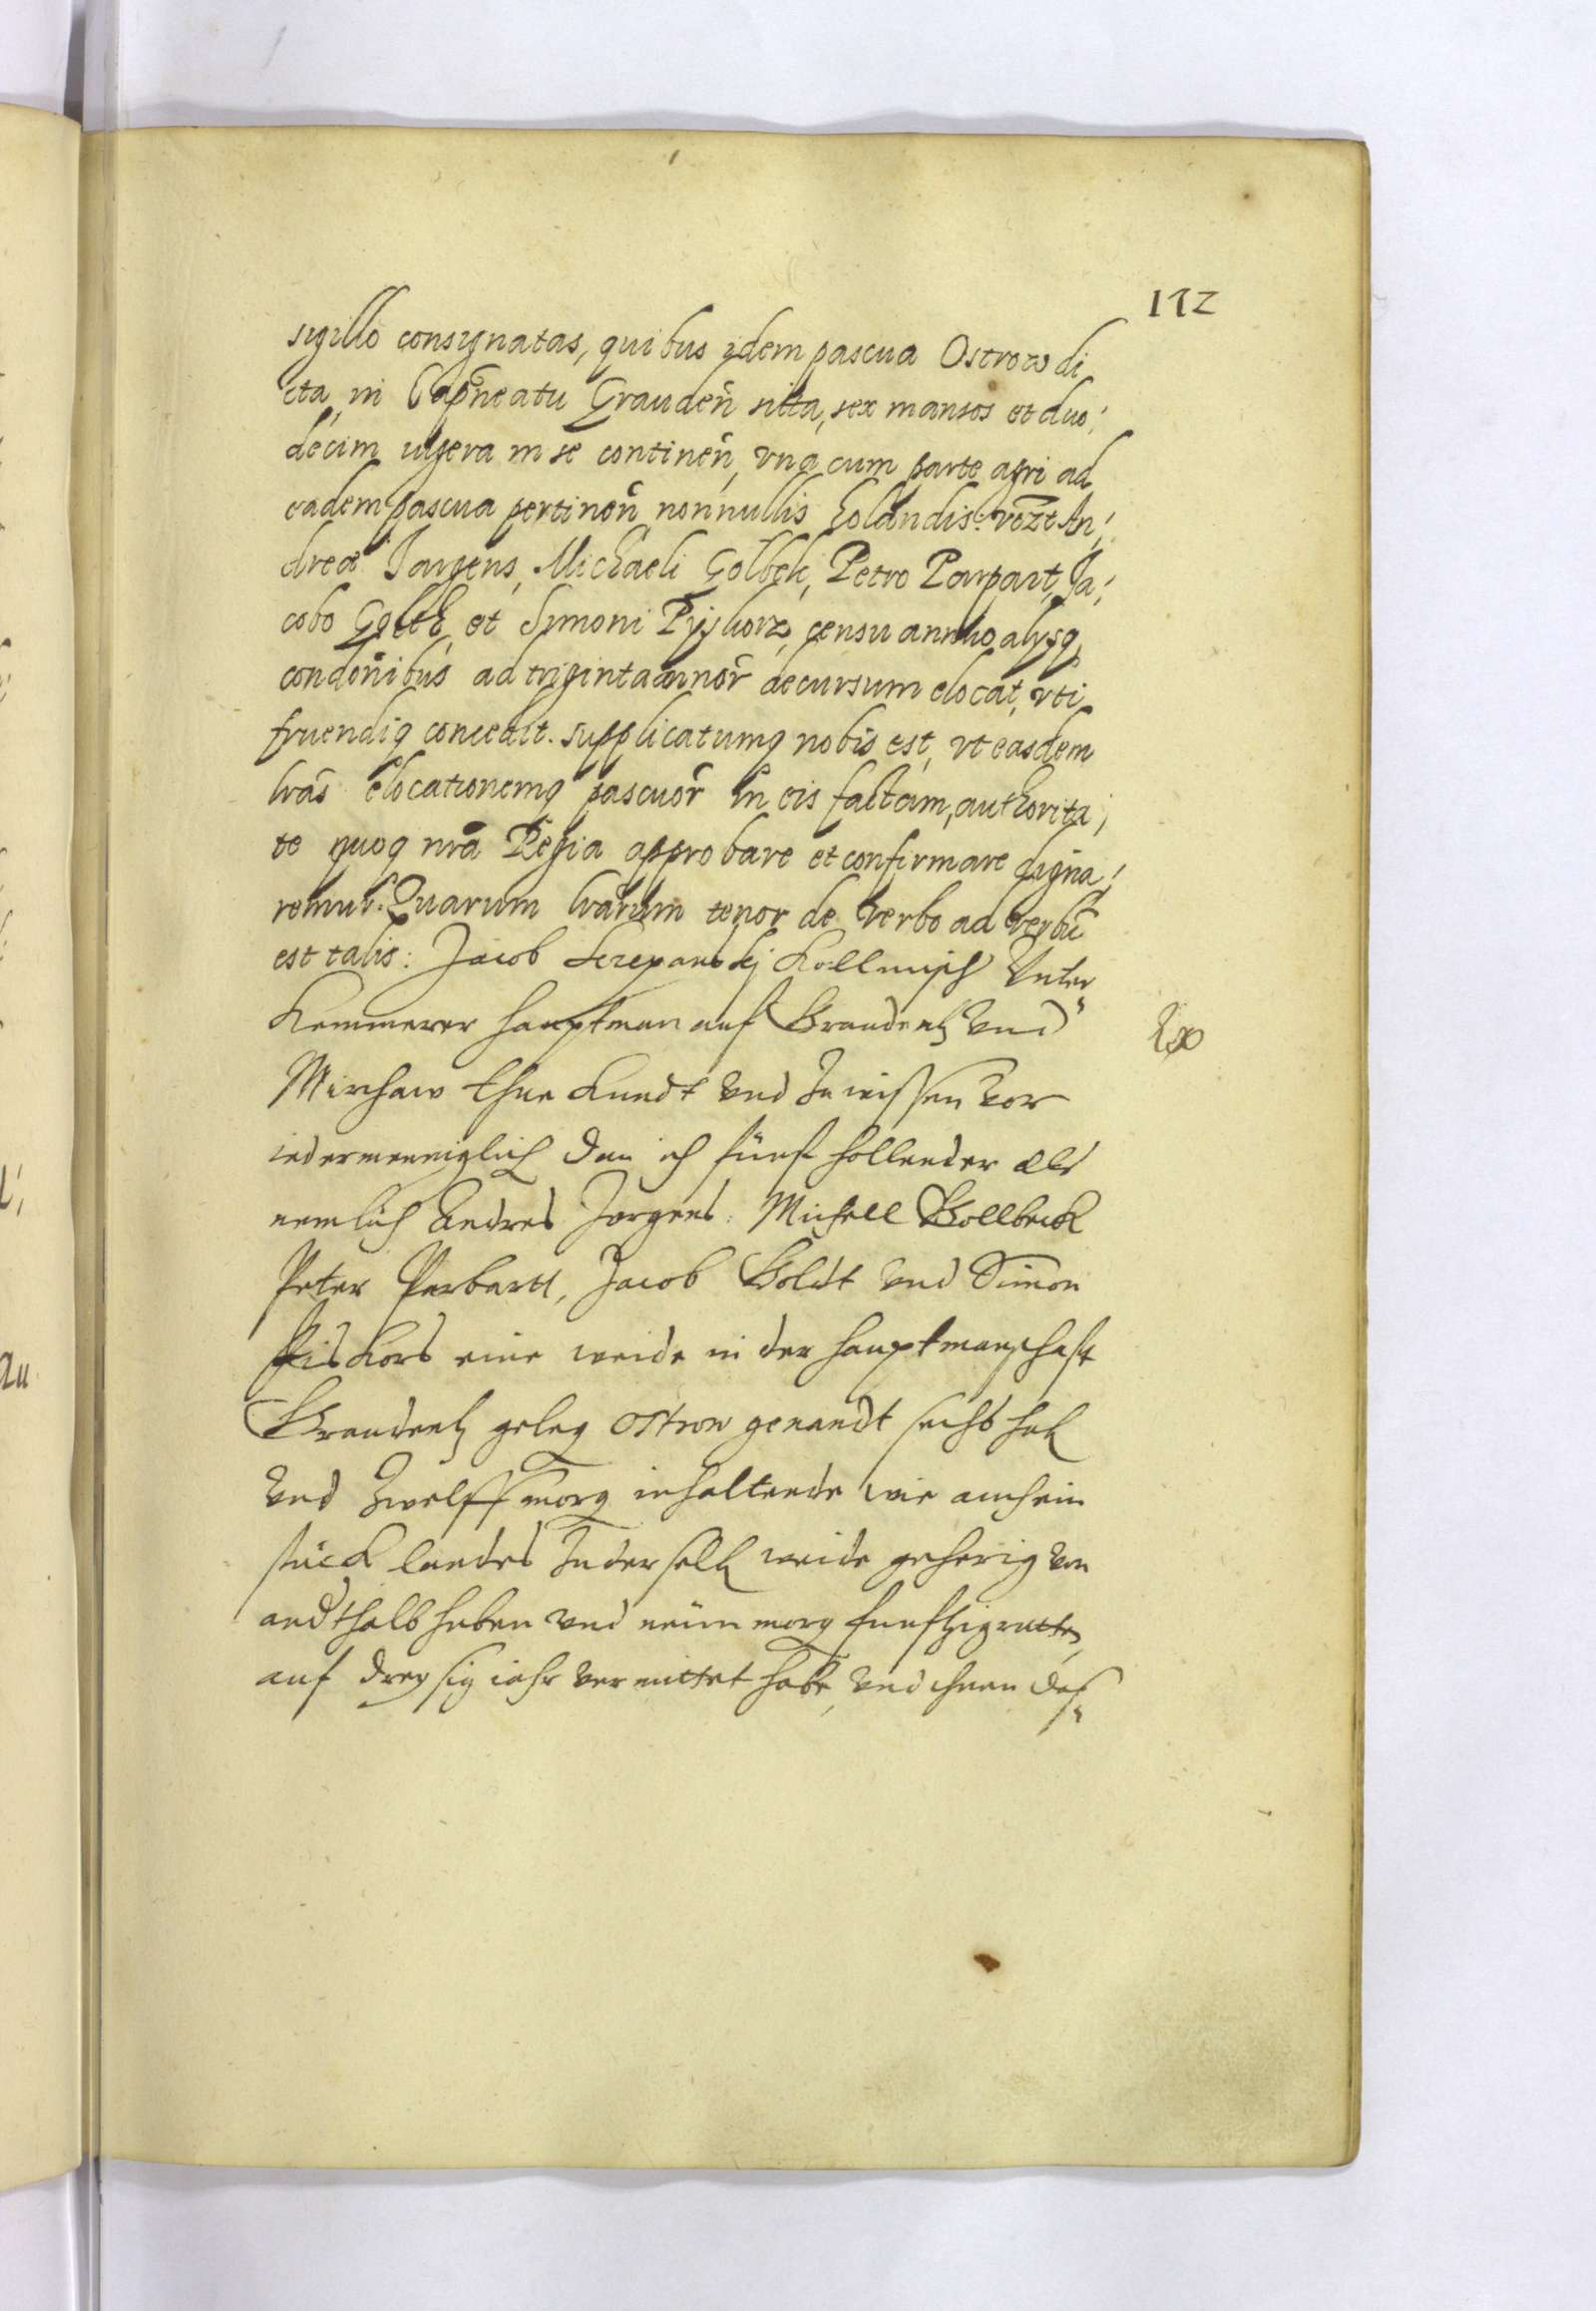 172
sigillo consignatas, quibus idem pascua Ostrow di
cta, in Capneatu Grauden̄ sitta, sex mansos et duo,
decim iugera in se continen̄, vna cum parte agri ad
eadem pascua pertinen̄ nonnullis Holandis: vezt An,
dreæ Jargens, Michaeli Golbek, Petro Parpart, Ja,
cobo Goltt, et Simoni Pijskorz, censu annuo alysq
condōnibus ad triginta annor̄ decursum elocat, vti
fruendiq concedit. Supplicatumq nobis est, vt easdem
lrās elocationemq pascuor̄ in eis factam, authorita,
te quoq nrā Regia approbare et confirmare digna,
remur. Quarum lrārum tenor de verbo ad verbū
est talis: Jacob Sczepanskj Kollmisch Vnter
Kemmerer Hauptman auf Graudentz vnd
Mirchaw thue kundt vnd zu wissen vor
iedermenniglich das ich fünf hollender als
nemlich Andres Jorgens: Michell Gollbeck
Peter Parbartt, Jacob Goldt vnd Simon
Piskors eine weide in der Hauptmanschaft
Graudentz geleg Ostrow genandt sechs hub
vnd Zwelff morg inhaltende wie auch ein
stück landes zu derselb weide geherig von
andthalb huben vnd neun morg funftzig rutte
auf dreysig iahr vermittet habe, vnd ihnen das